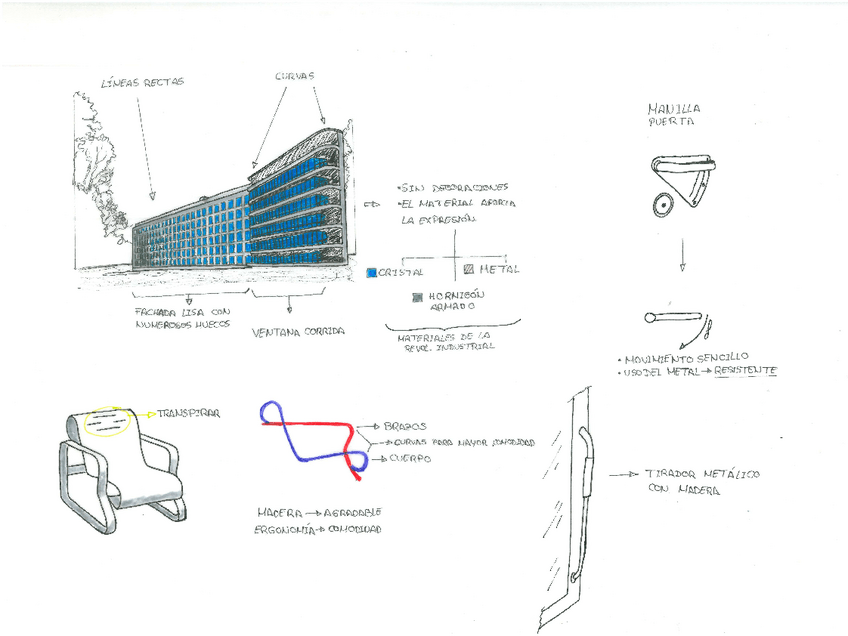 LÍNEAS RECTAS
CURVAS
•SIN DECORACIONES
•EL MATERIAL APORTA
LA EXPRESIÓN
CRISTAL
METAL
HORMIGÓN
ARMADO
MATERIALES DE LA
REVOL. INDUSTRIAL
FACHADA LISA CON
NUMEROSOS HUECOS
VENTANA CORRIDA
MANILLA
PUERTA
• MOVIMIENTO SENCILLO
• USO DEL METAL → RESISTENTE
TRANSPIRAR
BRAZOS
CURVAS PARA MAYOR COMODIDAD
CUERPO
MADERA → AGRADABLE
ERGONOMÍA → COMODIDAD
TIRADOR METÁLICO
CON MADERA